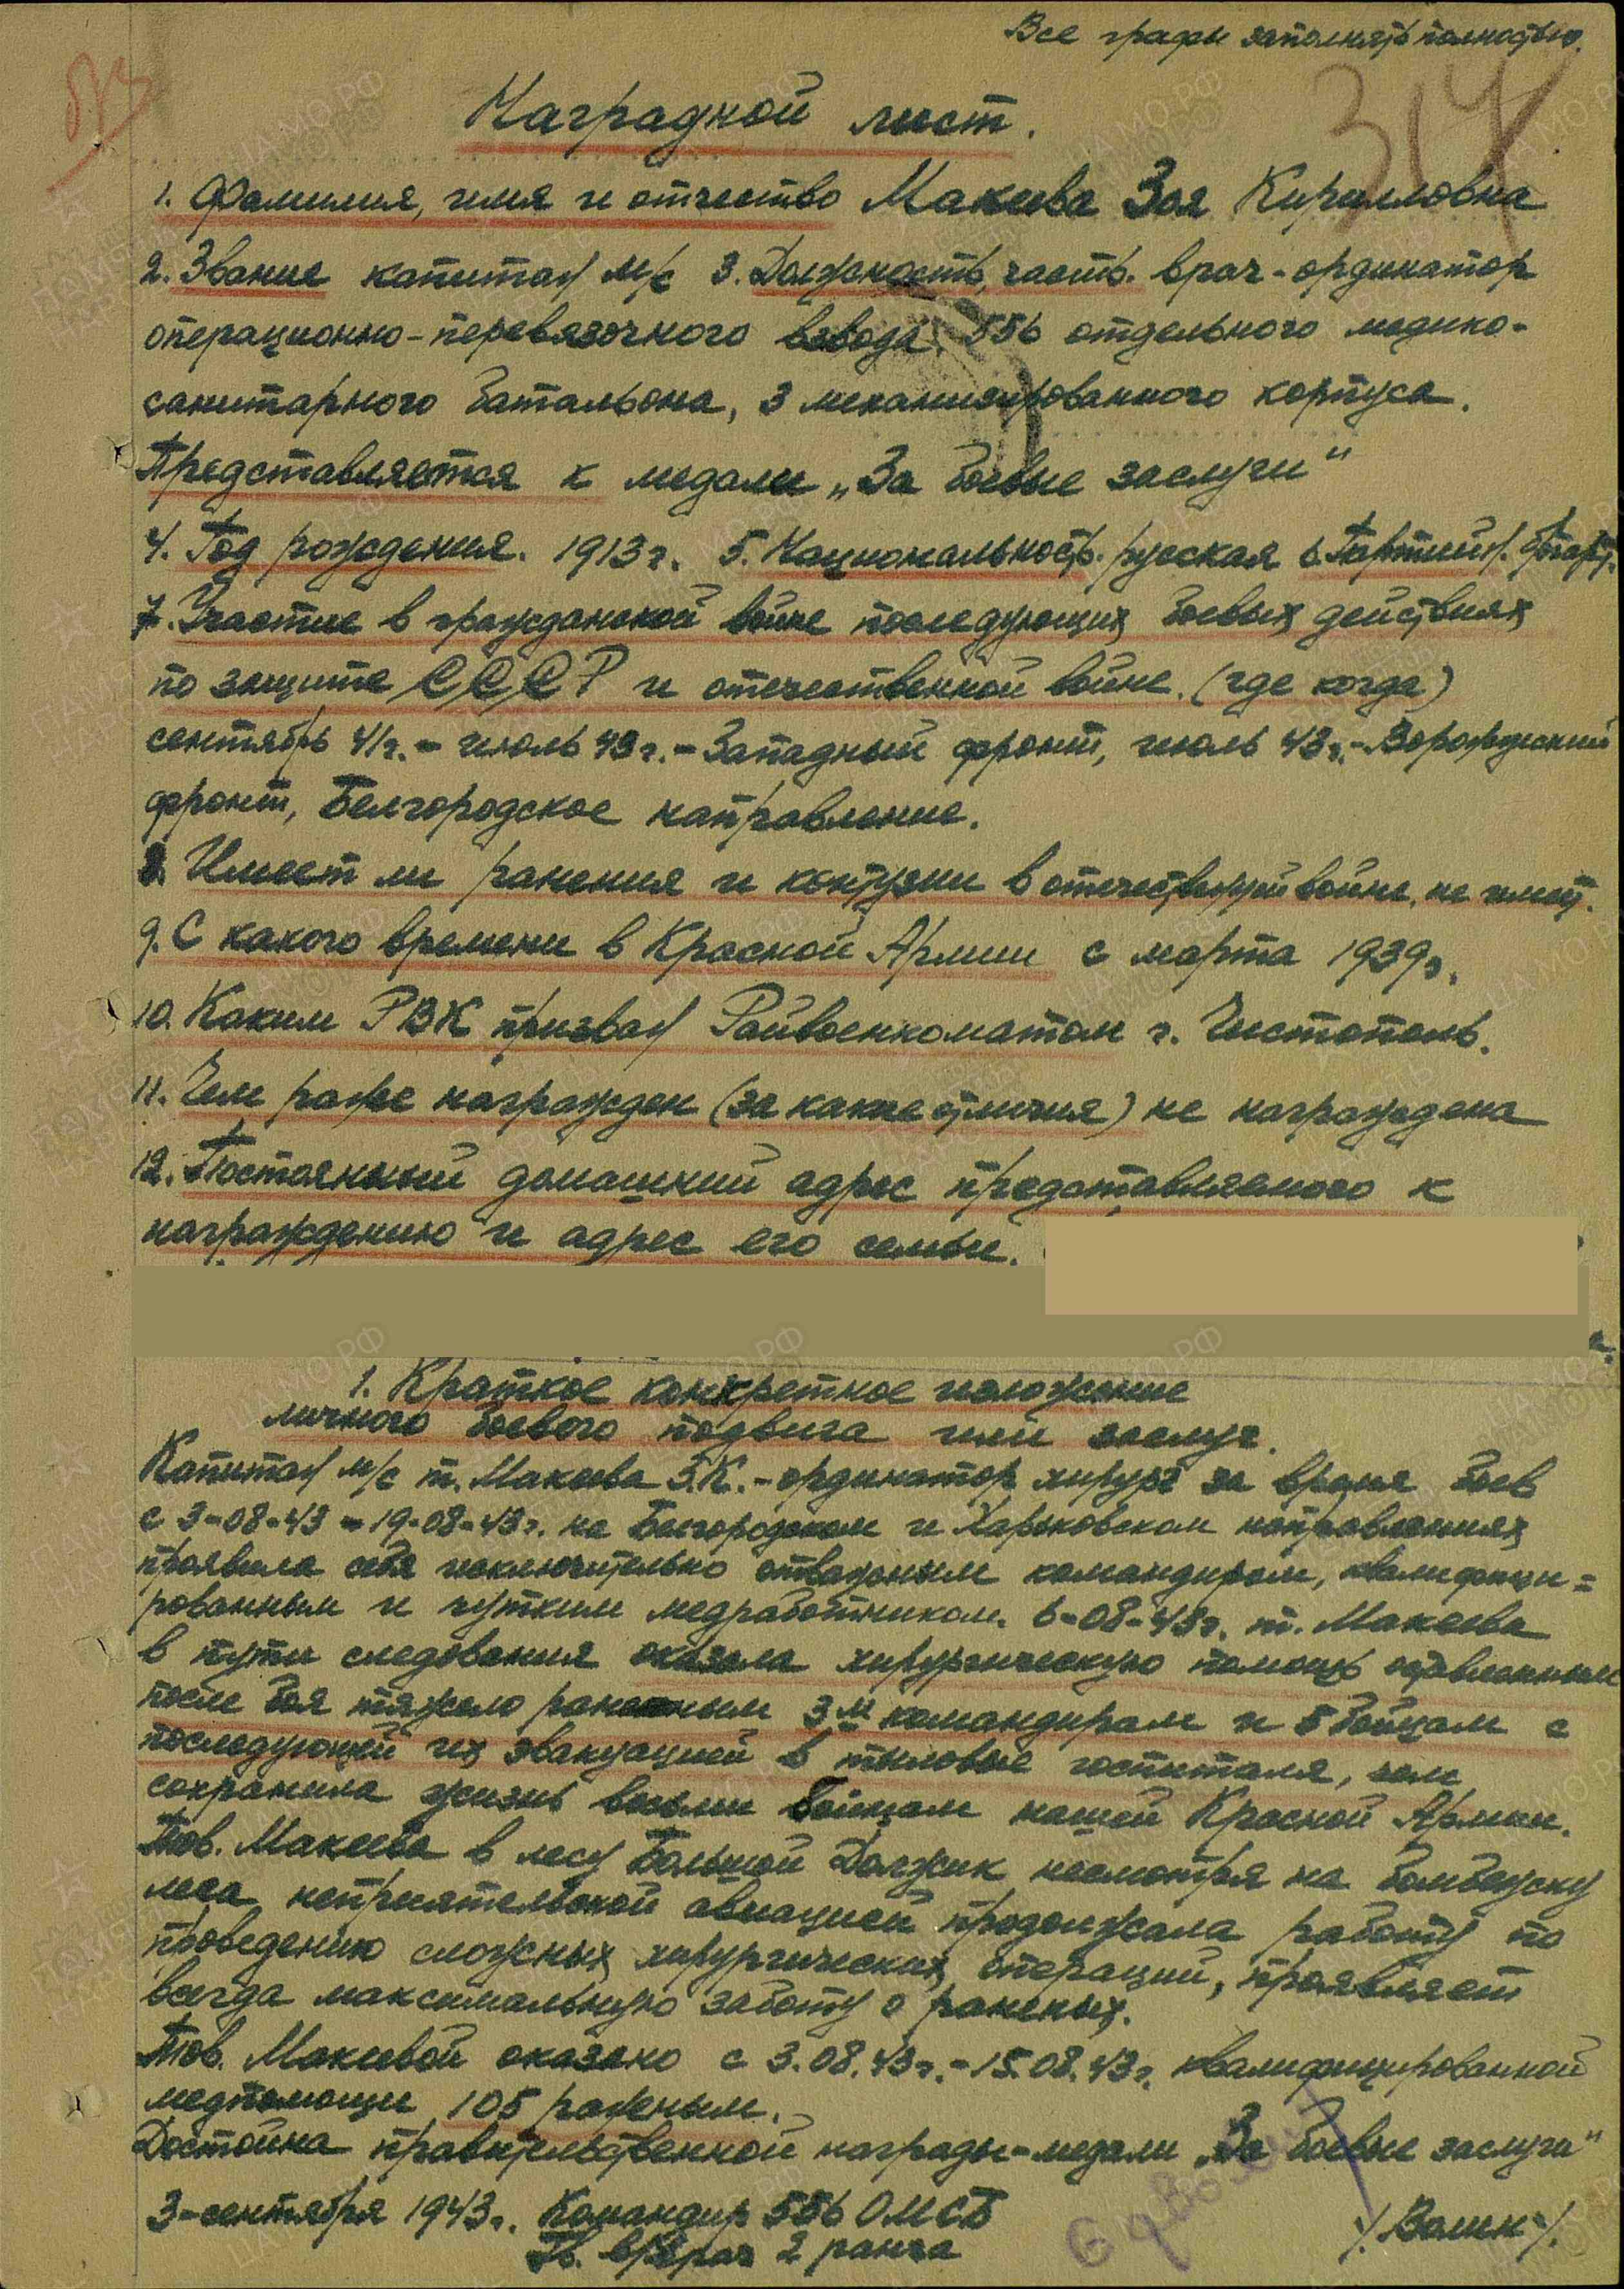 Все графы заполнять полностью.
314
Наградной лист.
1. Фамилия, имя и отчество Макеева Зоя Кирилловна
2. Звание капитан м/с 3. Должность, часть. врач-ординатор
операционно-перевязочного взвода, 556 отдельного медико-
санитарного батальона, 3 механизированного корпуса.
Представляется к медали „За боевые заслуги"
4. Год рождения. 1913 г. 5. Национальность. русская 6. Партийн.
7. Участие в гражданской войне последующих боевых действиях
по защите СССР и отечественной войне. (где когда)
сентябрь 41 г. - июль 43 г. - Западный фронт, июль 43 г. - Воронежский
фронт, Белгородское направление.
8. Имеет ли ранения и контузии в отечественной войне. не имеет.
9. С какого времени в Красной Армии с марта 1939 г.
10. Каким РВК призван Райвоенкоматом г. Чистополь.
11. Чем ранее награжден (за какие отличия) не награждена
12. Постоянный домашний адрес представляемого к
награждению и адрес его семьи.
1. Краткое конкретное изложение
личного боевого подвига или заслуг.
Капитан м/с т. Макеева З.К. - ординатор хирург за время боев
с 3-08-43 - 19-08-43 г. на Белгородском и Харьковском направлениях
проявила себя исключительно отважным командиром, квалифици=
рованным и чутким медработником. 6-08-43 г. т. Макеева
в пути следования оказала хирургическую помощь оставленным
после боя тяжело раненным 3м командирам и 5 бойцам с
последующей их эвакуацией в тыловые госпиталя, чем
сохранила жизнь восьми бойцам нашей Красной Армии.
Тов. Макеева в лесу Большой Должик несмотря на бомбежку
леса неприятельской авиацией продолжала работу по
проведению сложных хирургических операций, проявляет
всегда максимальную заботу о раненых.
Тов. Макеевой оказано с 3.08.43 г. - 15.08.43 г. квалифицированной
медпомощи 105 раненым.
Достойна правительственной награды - медали „За боевые заслуги"
3-сентября 1943 г. Командир 556 ОМСБ
Гв. в/врач 2 ранга